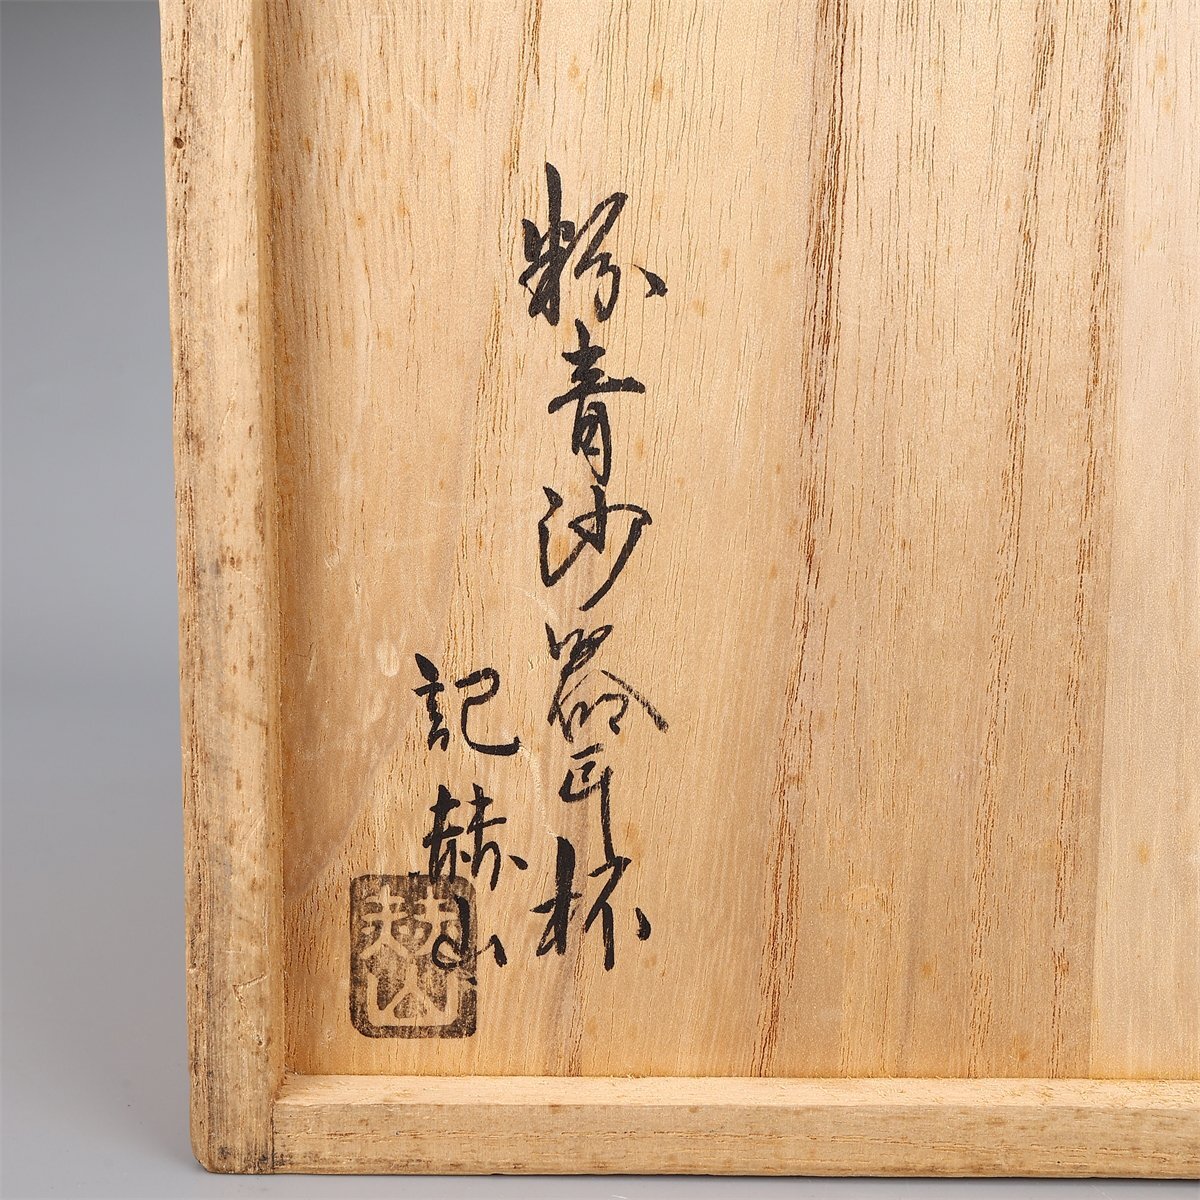 粉青沙器耳杯
記 赫山
赫山